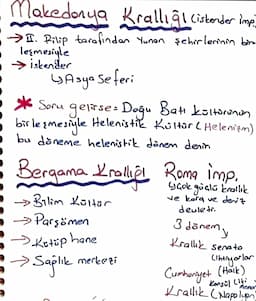 Makedonya Krallığı (iskender imp)
→ II. Filip tarafından Yunan şehirlerinin bir
leşmesiyle
→ iskender
↳ Asya Seferi
* Soru gelirse = Doğu Batı kültürünün
birleşmesiyle Helenistik Kültür (Helenizm)
bu döneme helenistik dönem denir
Bergama Krallığı
→ Bilim Kültür
→ Parşömen
→ Kütüphane
→ Sağlık merkezi
Roma imp.
↳ Çok güçlü krallık
ve kara ve deniz
devleti
3 dönem
Krallık senato
ihtiyarlar
Cumhuriyet (Halk)
Krallık (Napolyon)